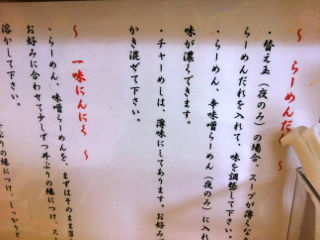 ～ らーめんだ
・替え玉（夜のみ）の場合、スープが薄くな
らーめんだれを入れて、味を調整して下さい。
・らーめん、辛味噌らーめん（夜のみ）に入れ
味が濃くできます。
・チャーめしは、薄味にしてあります。お好み
かき混ぜて下さい。
～ 一味にんにく ～
・らーめん、味噌らーめんを、まずはそのまま
お好みに合わせて少しずつ丼ぶりの縁につけ、ス
溶かして下さい。
ぶりの縁につけ、しっかりと